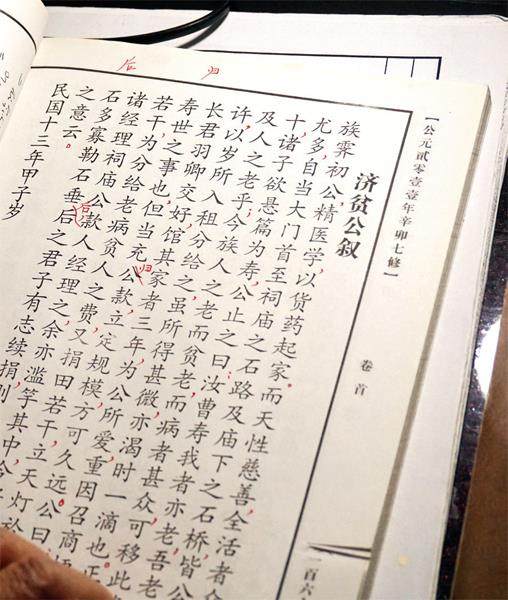 【公元贰零壹壹年辛卯七修】
卷首
一百六
济贫公叙
族霁初公,精医学,以货药起家。而天性慈善,全活者
尤多,自当大门首至祠庙之石路及庙下之石桥,皆公
十,诸子欲悬篇为寿,公止之曰:汝曹寿我者亦老吾老
及人之老乎,今族人之老而贫老而病者甚众,可移此
许,以岁所入租分给之,虽所得甚微,亦渴时一滴也。正
长君羽卿交好,馆其家者三年,为公所爱重,因召商
寿世之事也,但当充公款,立定规模,方可久远。公曰
若干,为分给老病贫人之费,又捐田若干,立天灯於
诸经理祠庙公款人经理之余,亦滥竽其中,
石多寡勒石垂后之君子有志续捐,则
之意云。
民国十三年甲子岁
后
归
后
归